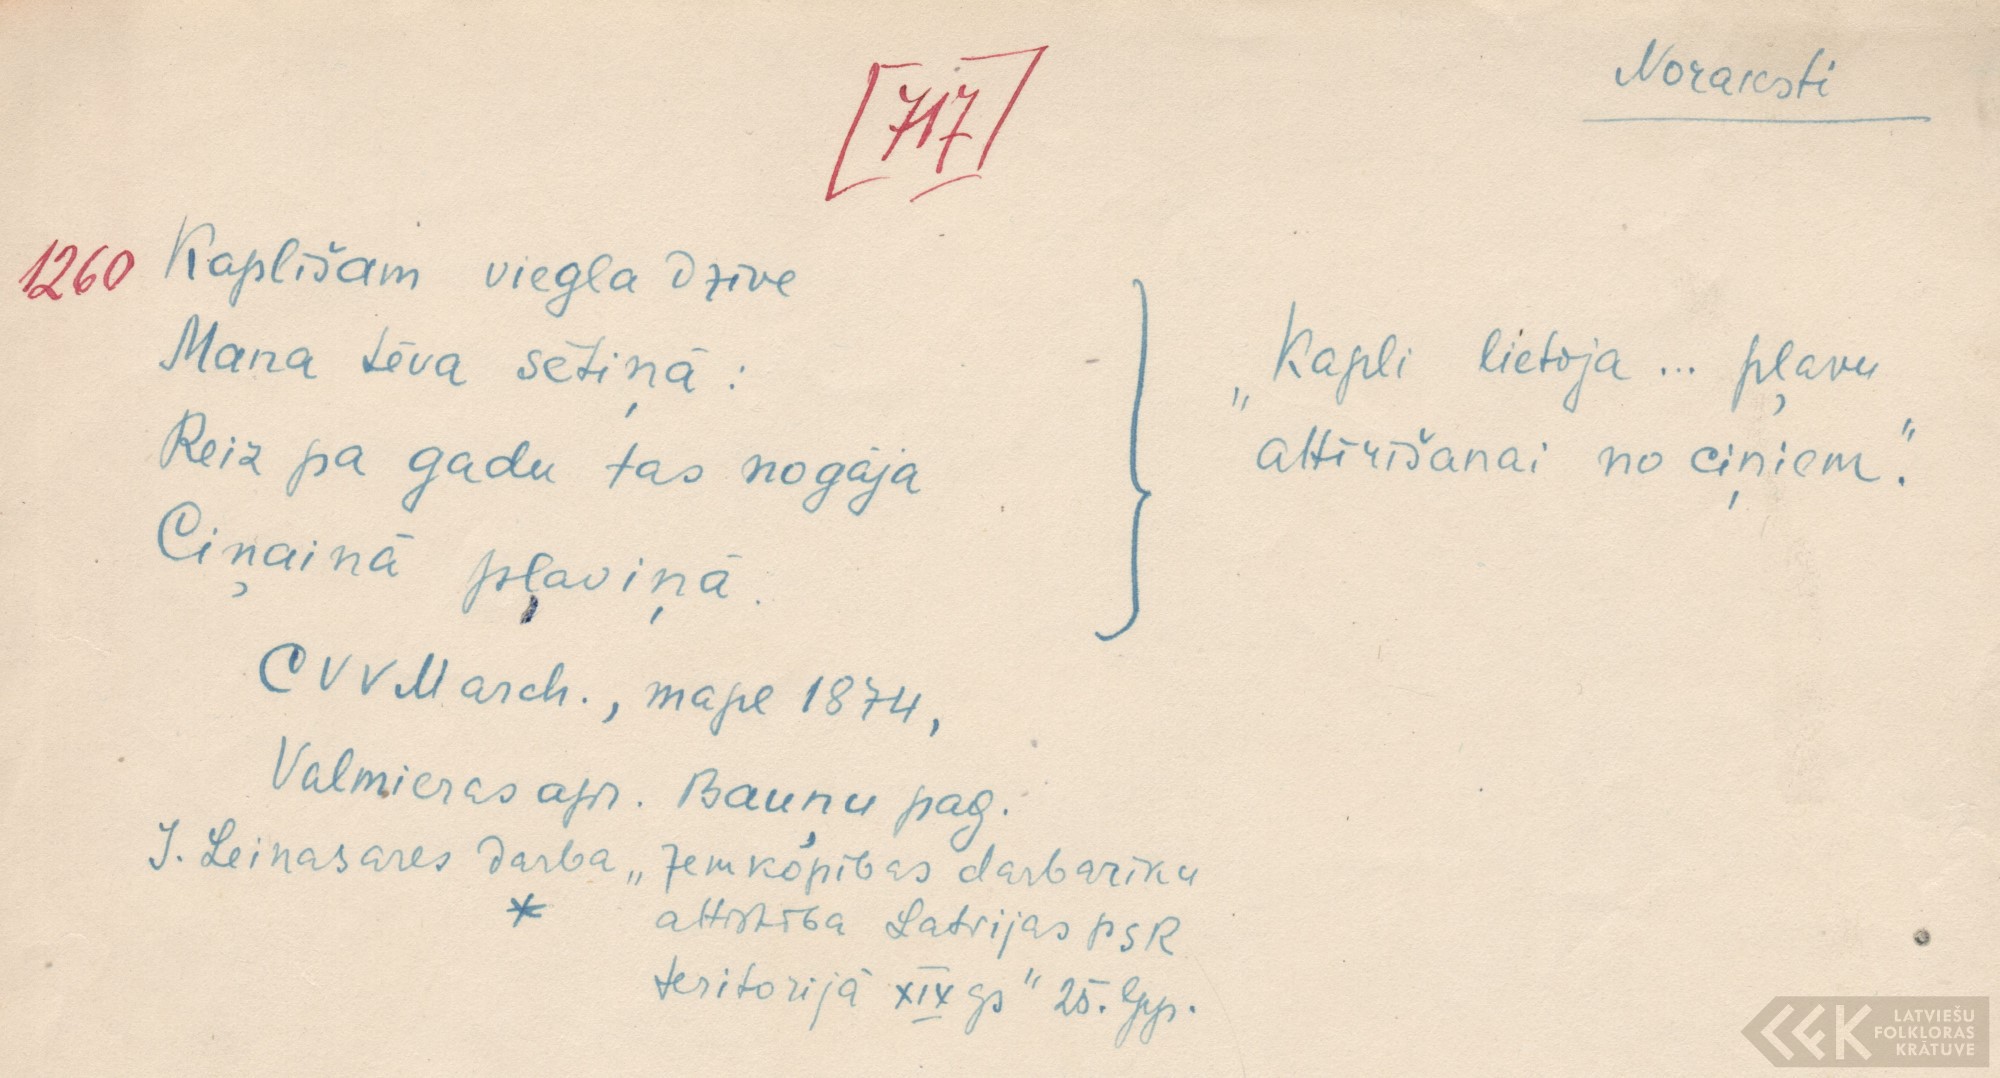 [717]
Noraksti
1260 Kaplīšam viegla dzīve
Mana tēva sētiņā:
Reiz pa gadu tas nogāja
Ciņainā pļaviņā.
„Kapli lietoja ... pļavu
attīrīšanai no ciņiem".
CVVM arch., mape 1874,
Valmieras apr. Bauņu pag.
J. Leinasares darba „Zemkopības darbarīku
* attīstība Latvijas PSR
teritorijā XIX gs" 25. lpp.
LATVIEŠU
FOLKLORAS
KRĀTUVE